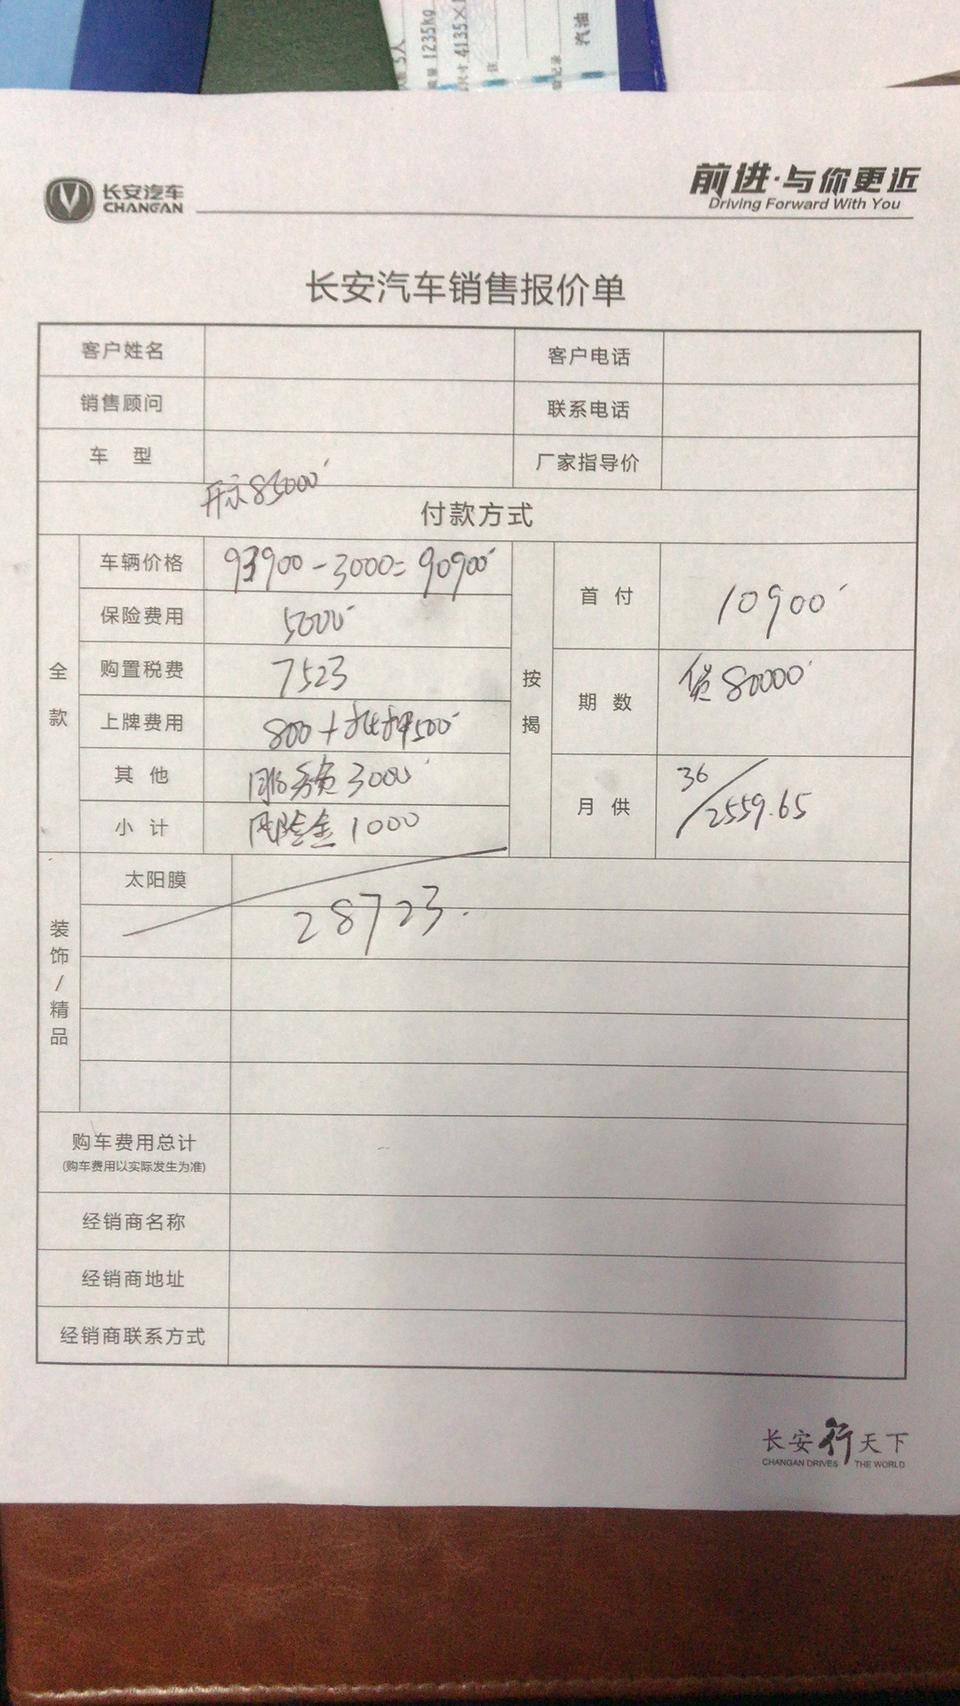 5人
1235kg
4135×1
注
记录
汽油
长安汽车
CHANGAN
前进·与你更近
Driving Forward With You
长安汽车销售报价单
客户姓名
客户电话
销售顾问
联系电话
车 型
厂家指导价
开票85000
付款方式
全款
车辆价格 93900-3000=90900
保险费用 5000
购置税费 7523
上牌费用 800+抵押500
其 他 服务费3000
小 计 风险金1000
按揭
首 付 10900
期 数 贷80000
月 供 36/2559.65
装饰/精品
太阳膜
28723.
购车费用总计
(购车费用以实际发生为准)
经销商名称
经销商地址
经销商联系方式
长安行天下
CHANGAN DRIVES THE WORLD